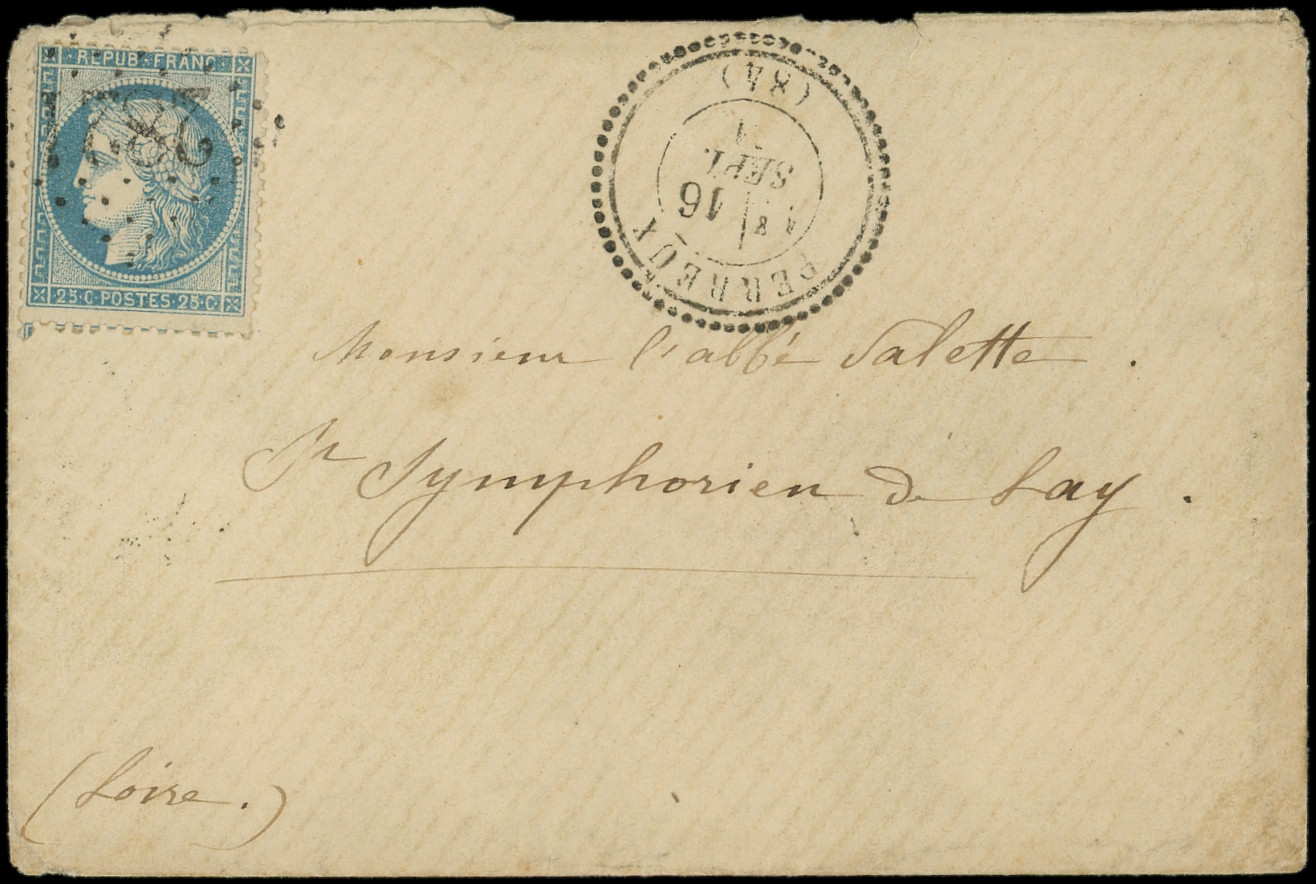 REPUB·FRANC
25·C·POSTES·25·C
PERREUX
(84)
16
SEPT.
Monsieur l'abbé Valette.
St Symphorien de Lay.
(Loire.)